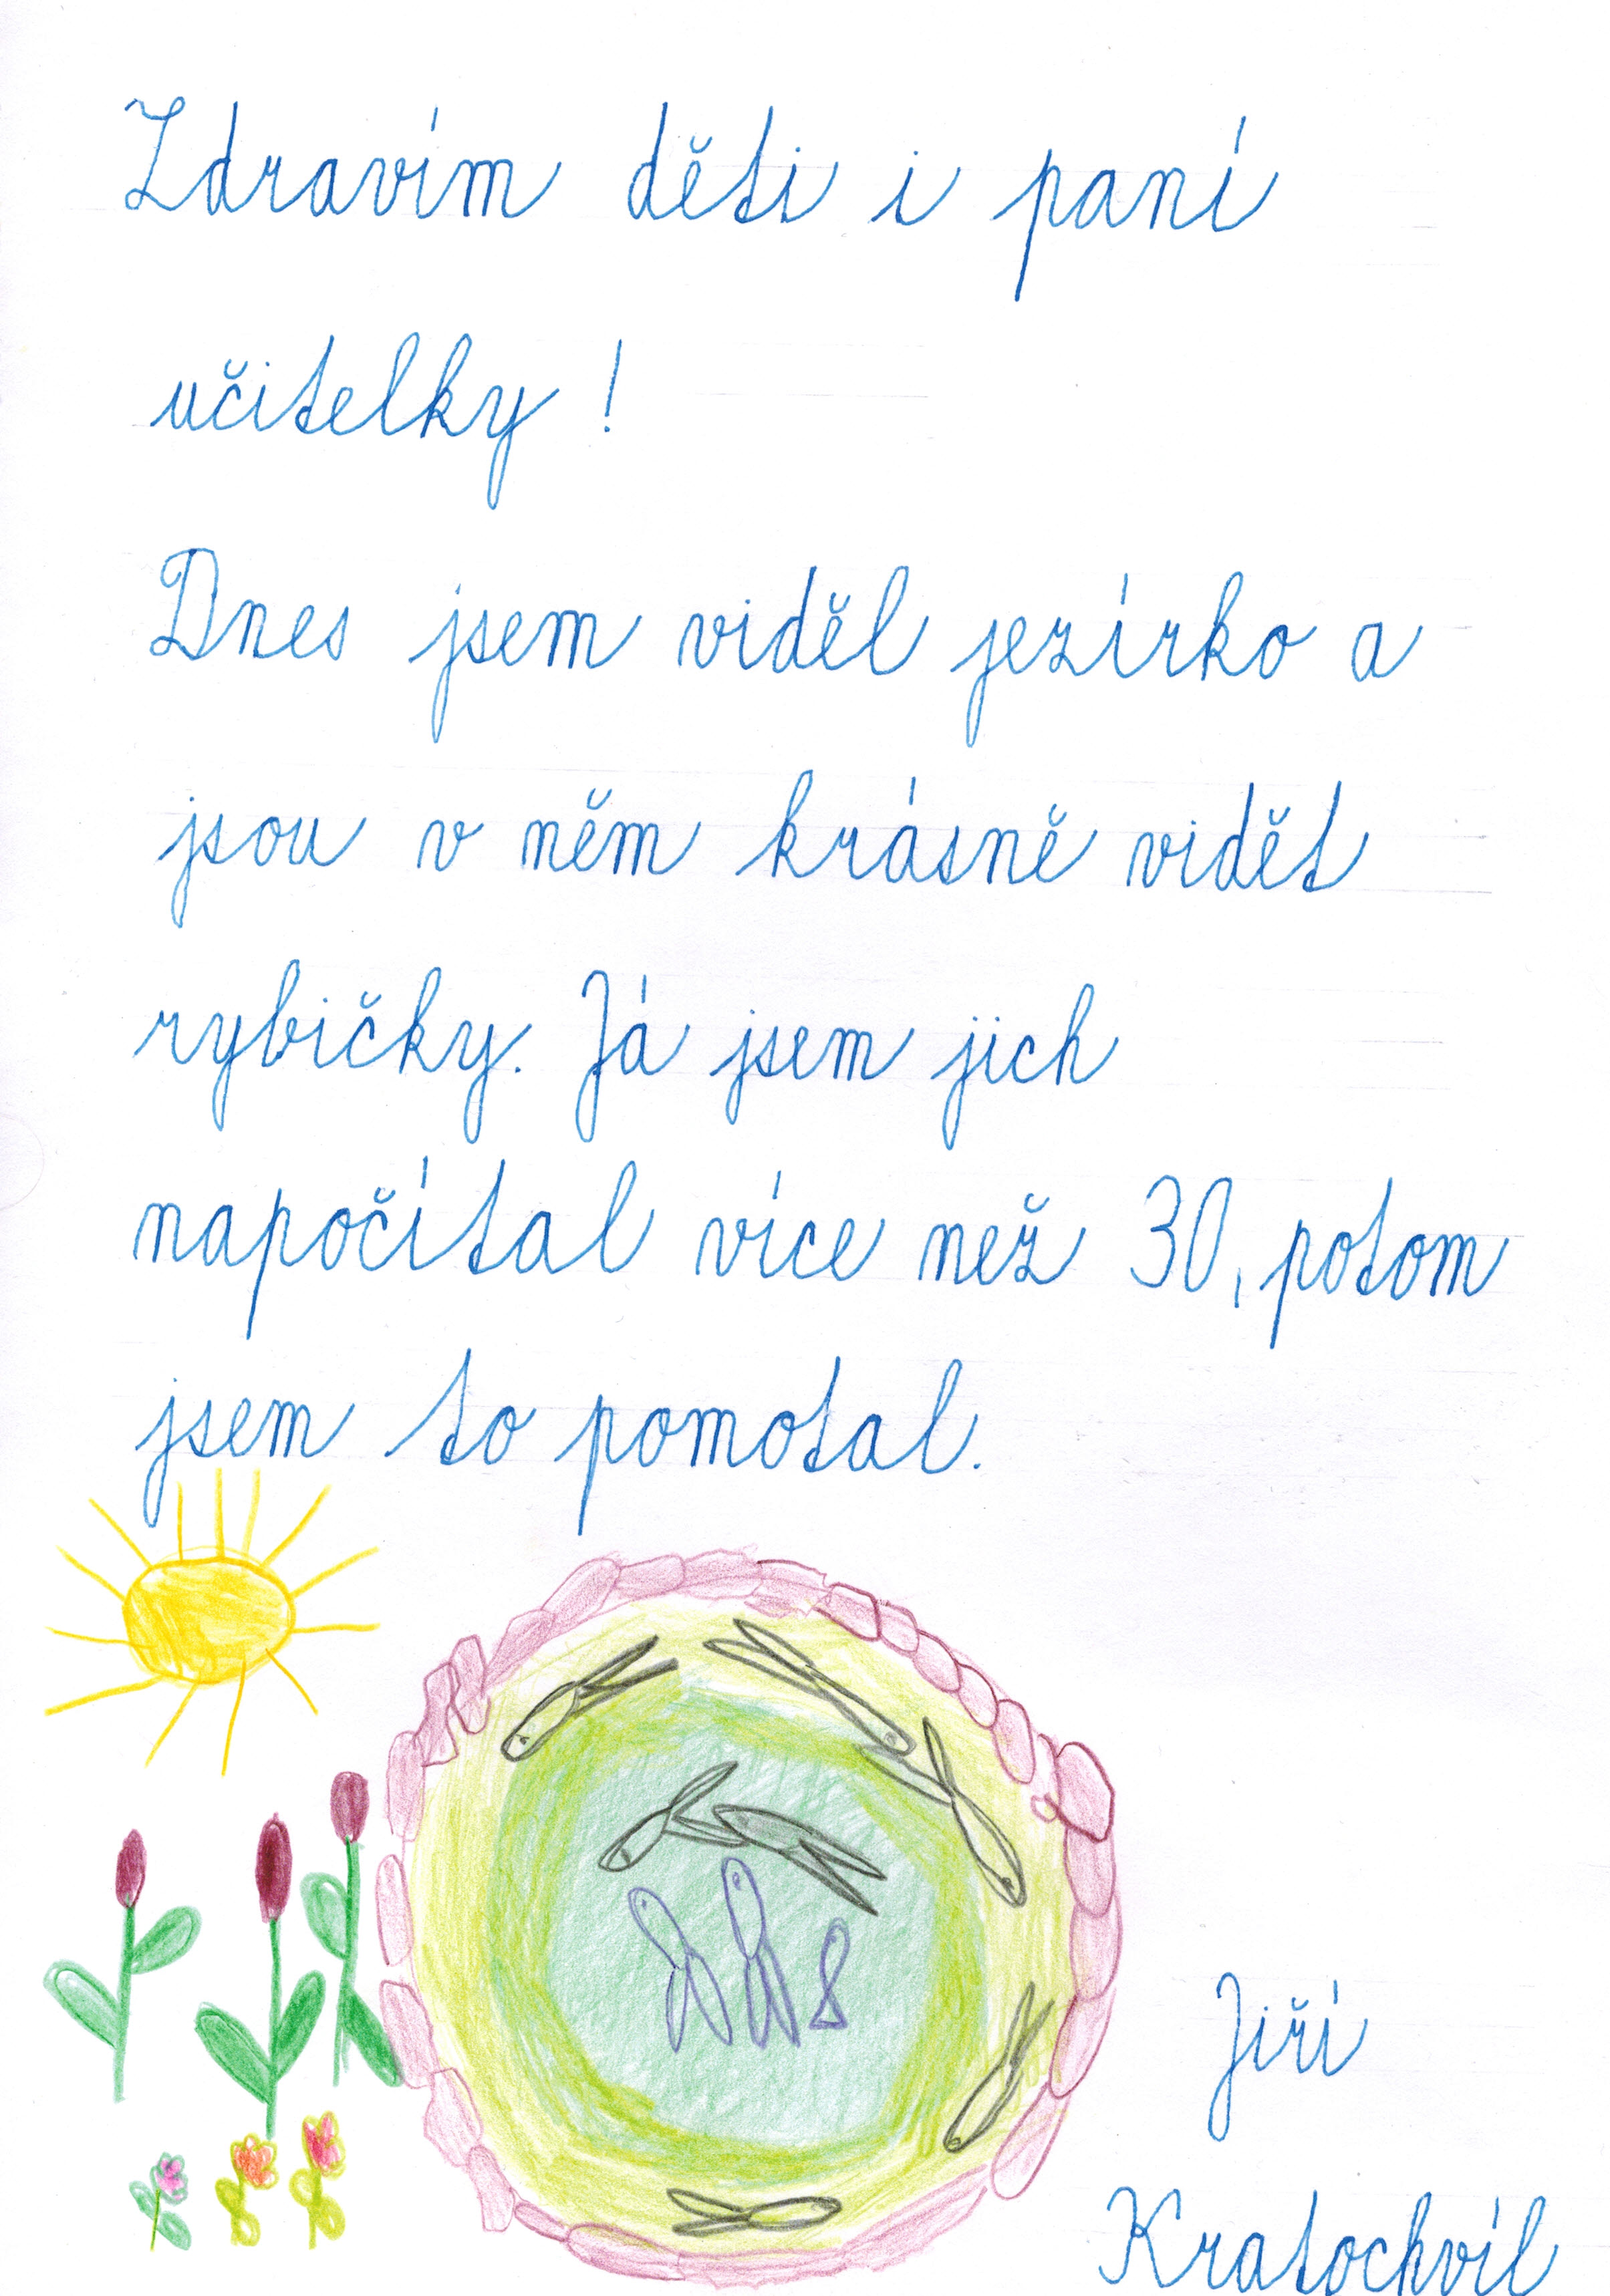 Zdravím děti i paní
učitelky!
Dnes jsem viděl jezírko a
jsou v něm krásně vidět
rybičky. Já jsem jich
napočítal více než 30, potom
jsem to pomotal.
Jiří
Kratochvíl